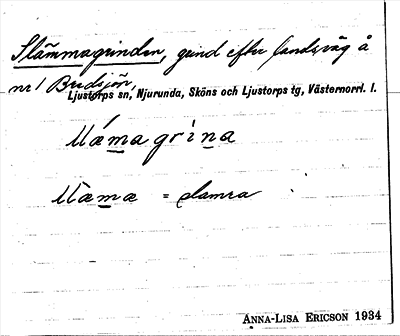 Slåmmagrinden, grind efter landsväg å
nr 1 Bredsjön,
Ljustorps sn, Njurunda, Sköns och Ljustorps tg, Västernorrl. l.
grina
= slamra
ANNA-LISA ERICSON 1934